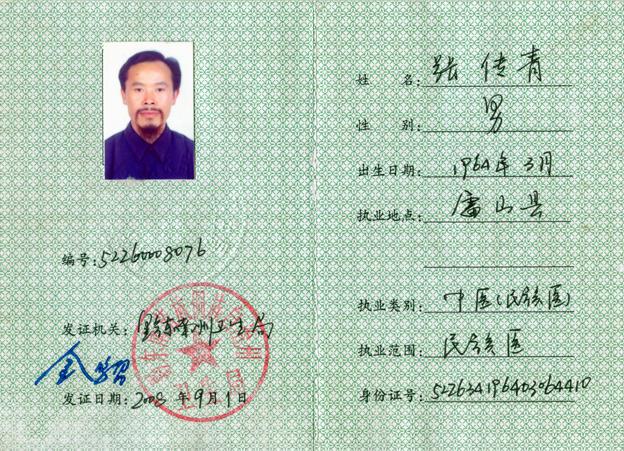 编号:52260008076
发证机关:黔东南州卫生局
发证日期:2008年9月1日
姓 名:张传青
性 别:男
出生日期:1964年3月
执业地点:雷山县
执业类别:中医(民族医)
执业范围:民族医
身份证号:522634196403064410